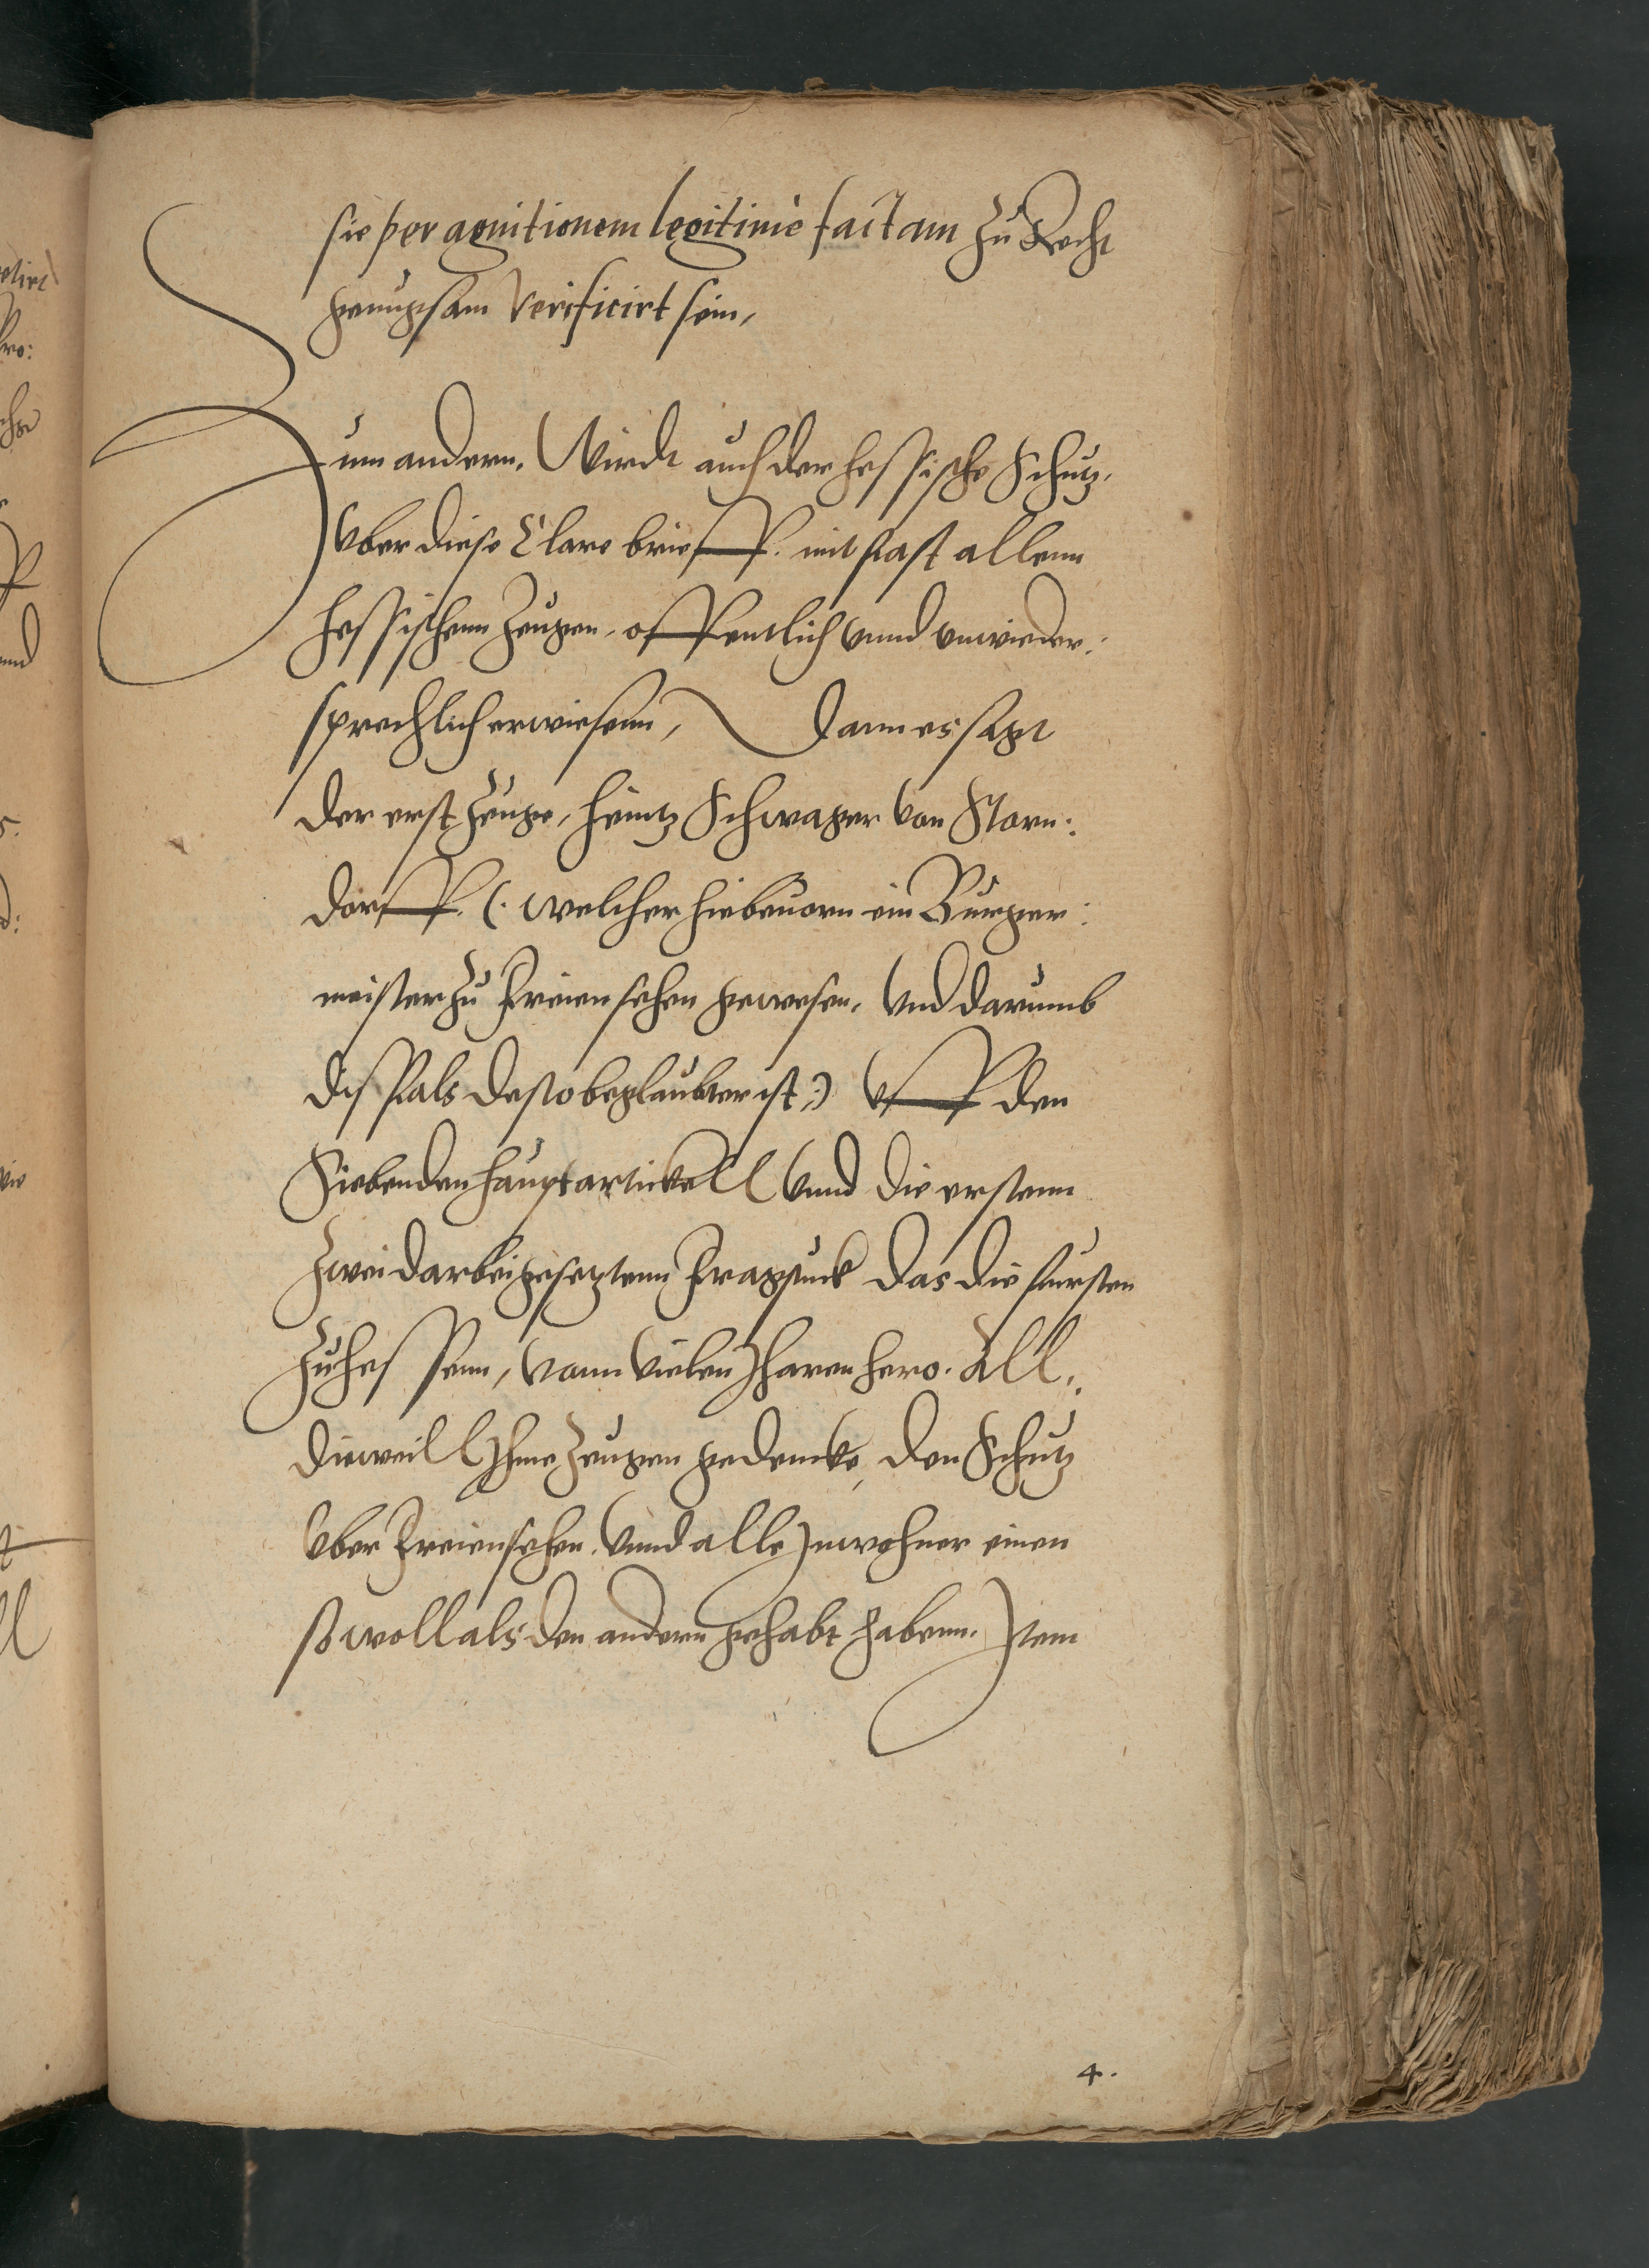 sie per agnitionem legitimè factam zu Recht
genugsam verificirt sein,
Zum andern. Wirdt auch der hessische Schutz,
vber diese Clare brieff. mit fast allenn
hessischenn Zeugen, offentlich vnnd vnwieder:
sprechlich erwiesenn, Dann es sagt
der erst Zeuge, Heintz Schwager von Storn:
dorff. (: welcher hiebeuorn ein Burger:
meister zu Freiensehen gewesen, vnd darumb
disfals desto beglaubter ist :) vff den
Siebenden hauptartickell vnnd die erstenn
zwei darbei gesetztenn Fragstuck das die fursten
zu Hessenn, vonn vielen Jharen hero. all.
dieweill Jhme Zeugen gedencke, den Schutz
vber Freiensehen, vnnd alle Jnwohner einen
sowoll als den andern gehabt habenn. Jtem
4.